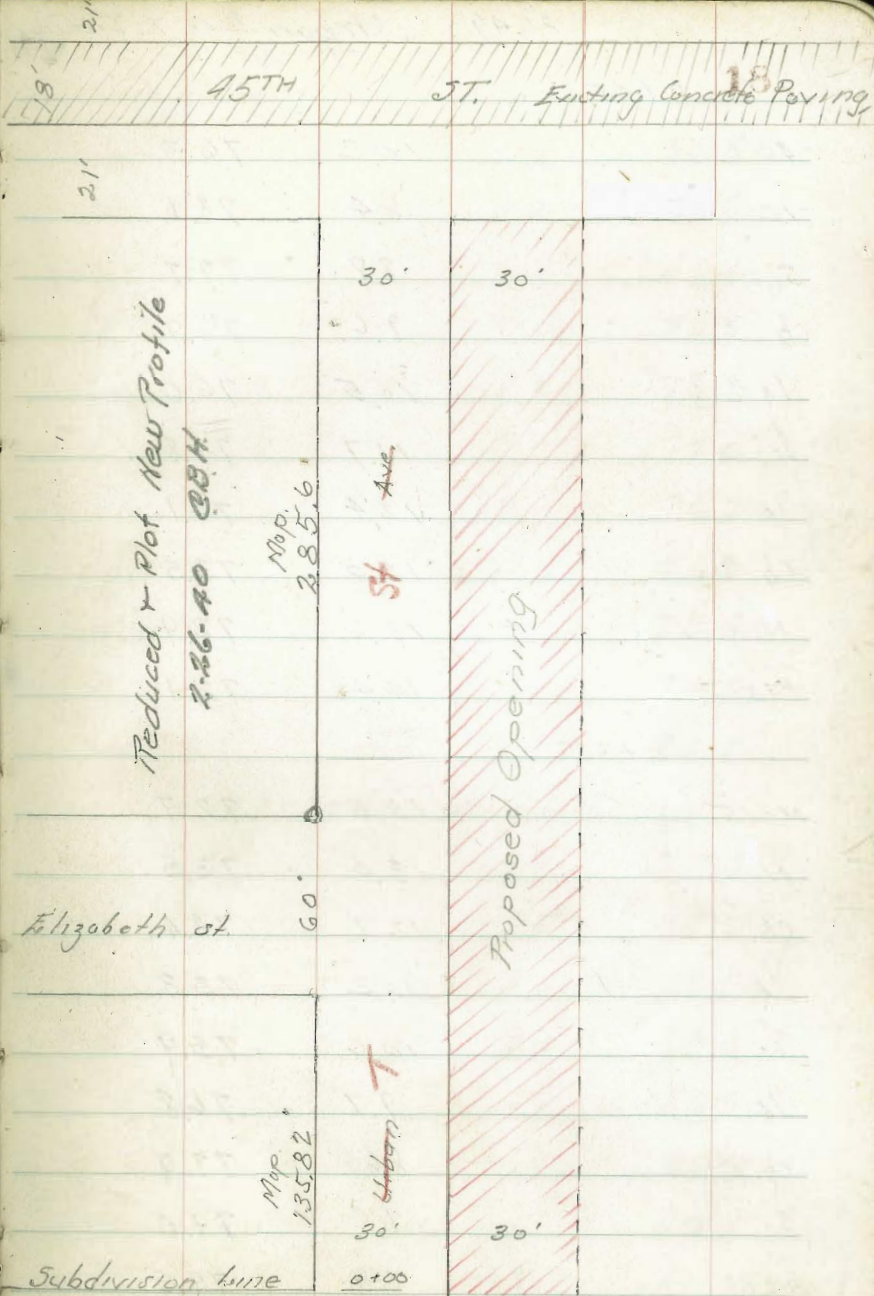 21'
18' 45TH ST. Existing Concrete Paving
18
21'
30' 30'
Reduced & Plot New Profile
2-26-40 C.B.H.
Map.
285.6'
St Ave.
Proposed Opening
60'
Elizabeth st.
T
Urban
Map.
135.82'
30' 30'
Subdivision Line 0+00